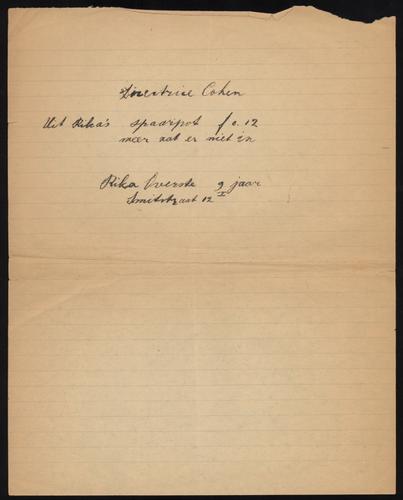 Directrice Cohen
Uit Rika's spaarpot f 0.12
meer zat er niet in
Rika Overste 9 jaar
Smitstraat 12